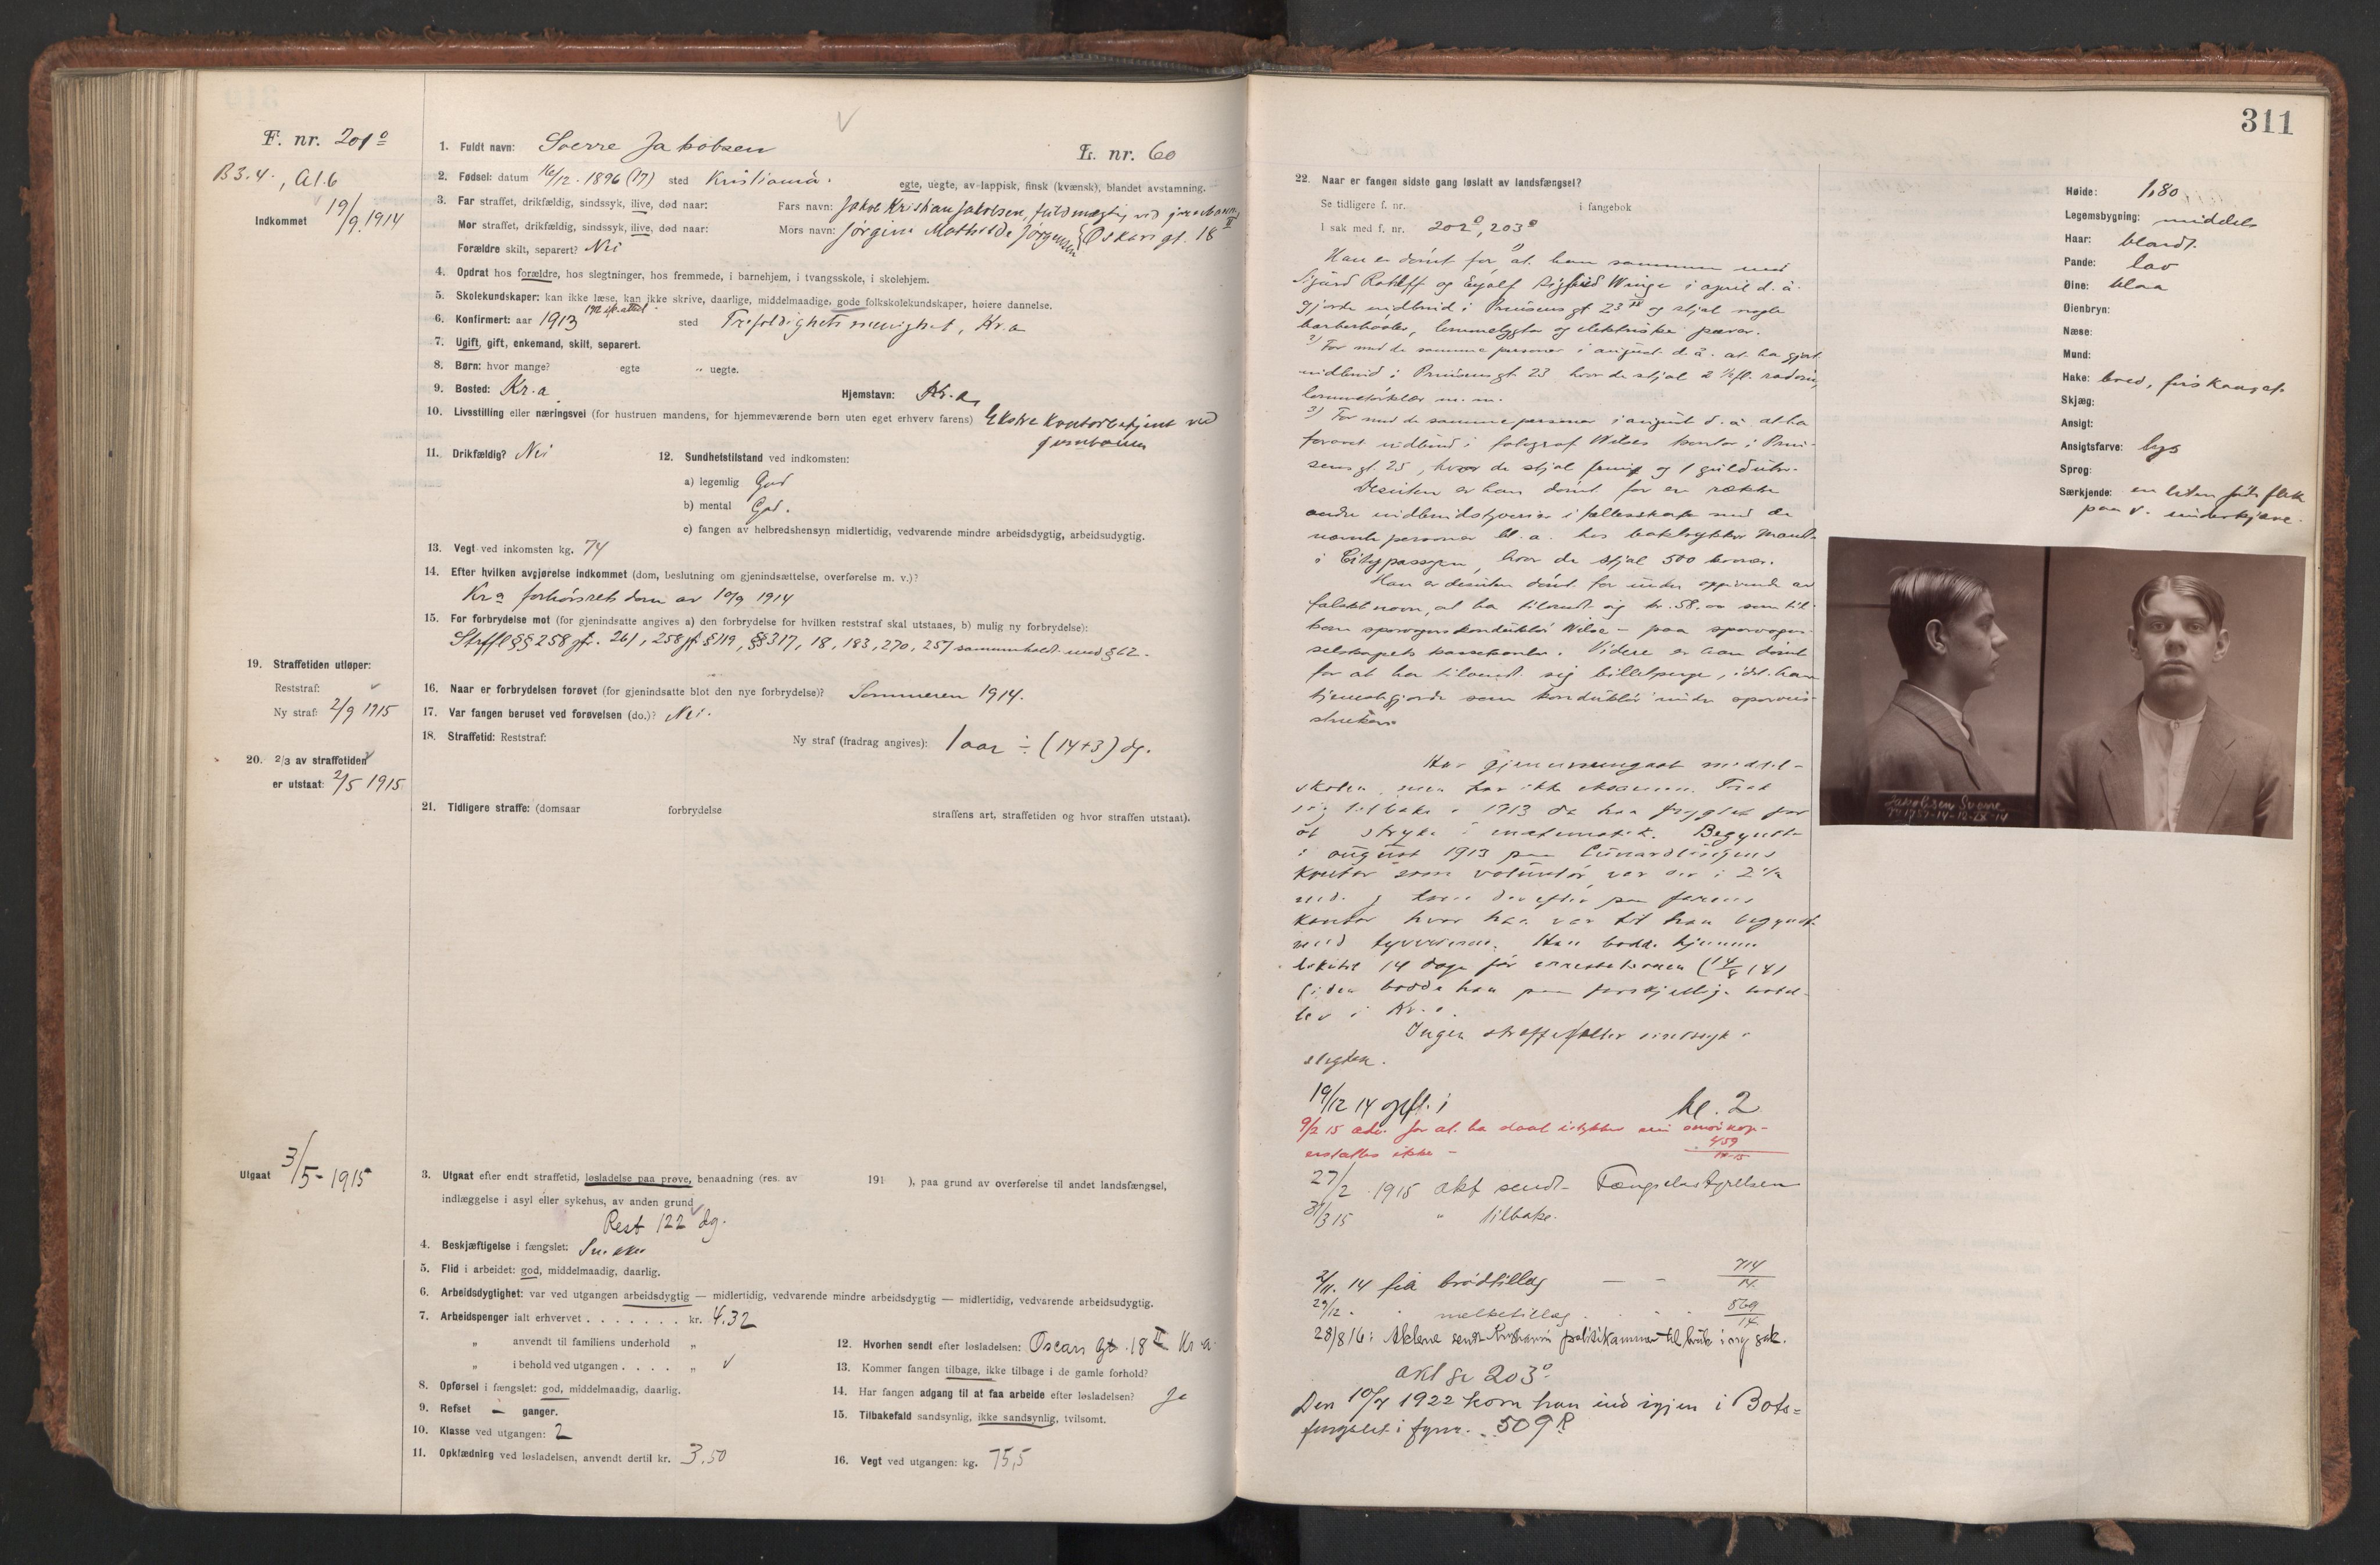 F. nr. 201º
B 3.4., Al.6
Indkommet 19/9 1914
1. Fuldt navn: Sverre Jakobsen
L. nr. 60
2. Fødsel: datum 16/12. 1896 (17) sted Kristiania.
egte, uegte, av lappisk, finsk (kvænsk), blandet avstamning.
3. Far straffet, drikfældig, sindssyk, ilive, død naar: Fars navn: Jakob Kristian Jakobsen, fuldmægtig ved jernbanen
Mor straffet, drikfældig, sindssyk, ilive, død naar: Mors navn: Jørgine Mathilde Jørgensen Oskars gt. 18 II
Forældre skilt, separert? Nei
4. Opdrat hos forældre, hos slegtninger, hos fremmede, i barnehjem, i tvangsskole, i skolehjem.
5. Skolekundskaper: kan ikke læse, kan ikke skrive, daarlige, middelmaadige, gode folkskolekundskaper, høiere dannelse.
6. Konfirmert: aar 1913 sted Trefoldighets menighet, Kr.a
7. Ugift, gift, enkemand, skilt, separert.
8. Børn: hvor mange? egte „ uegte.
9. Bosted: Kr.a. Hjemstavn: Kr.a
10. Livsstilling eller næringsvei (for hustruen mandens, for hjemmeværende børn uten eget erhverv farens) Ekstra kontorbetjent ved
jernbanen
11. Drikfældig? Nei
12. Sundhetstilstand ved indkomsten:
a) legemlig God
b) mental God.
c) fangen av helbredshensyn midlertidig, vedvarende mindre arbeidsdygtig, arbeidsudygtig.
13. Vegt ved inkomsten kg. 74
14. Efter hvilken avgjørelse indkommet (dom, beslutning om gjenindsættelse, overførelse m. v.)?
Kr.a forhørsrets dom av 10/9 1914
15. For forbrydelse mot (for gjenindsatte angives a) den forbrydelse for hvilken reststraf skal utstaaes, b) mulig ny forbrydelse):
Straffl §§ 258 jfr. 261, 258 jfr § 119, §§ 317, 18, 183, 270, 257 sammenholdt med § 62.
16. Naar er forbrydelsen forøvet (for gjenindsatte blot den nye forbrydelse)? Sommeren 1914.
17. Var fangen beruset ved forøvelsen (do.)? Nei.
18. Straffetid: Reststraf: Ny straf (fradrag angives): 1 aar ÷ (14+3) dg.
19. Straffetiden utløper:
Reststraf:
Ny straf: 2/9 1915
20. 2/3 av straffetiden
er utstaat: 2/5 1915
21. Tidligere straffe: (domsaar forbrydelse straffens art, straffetiden og hvor straffen utstaat).
Utgaat 3/5 - 1915
3. Utgaat efter endt straffetid, løsladelse paa prøve, benaadning (res. av 191 ), paa grund av overførelse til andet landsfængsel,
indlæggelse i asyl eller sykehus, av anden grund
Rest 122 dg.
4. Beskjæftigelse i fængslet:
5. Flid i arbeidet: god, middelmaadig, daarlig.
6. Arbeidsdygtighet: var ved utgangen arbeidsdygtig — midlertidig, vedvarende mindre arbeidsdygtig — midlertidig, vedvarende arbeidsudygtig.
7. Arbeidspenger ialt erhvervet . . . . . . . kr. 4.32
„ anvendt til familiens underhold „
„ i behold ved utgangen . . . . „
8. Opførsel i fængslet: god, middelmaadig, daarlig.
9. Refset — ganger.
10. Klasse ved utgangen: 2
11. Opklædning ved løsladelsen, anvendt dertil kr. 3.50
12. Hvorhen sendt efter løsladelsen: Oscars Gt. 18 II Kr.a.
13. Kommer fangen tilbage, ikke tilbage i de gamle forhold?
14. Har fangen adgang til at faa arbeide efter løsladelsen? Ja
15. Tilbakefald sandsynlig, ikke sandsynlig, tvilsomt.
16. Vegt ved utgangen: kg. 75,5
311
22. Naar er fangen sidste gang løslatt av landsfængsel?
Se tidligere f. nr. i fangebok
I sak med f. nr. 202º, 203º
Han er dømt for 1) at han sammen med
Sigurd Rohlff og Eyolf Sigfried Winge i april d. å.
gjorde indbrud i Prinsens gt 23 II og stjal nogle
barberhøvler, lommelygter og elektriske pærer.
2) For med de samme personer i august d. å. at ha gjort
indbrud i Prinsens gt. 23 hvor de stjal 2 ½ fl.
lommetørklær m. m.
3) For med de samme personer i august d. å. at ha
forøvet indbrud i fotograf Wilses kontor i Prin-
sens gt. 25, hvor de stjal og 1 guldur.
Desuten er han dømt for en række
andre indbrudstyverier i fællesskap med de
nævnte personer bl. a. hos boktrykker
i Citypassagen, hvor de stjal 500 kroner.
Han er desuten dømt for under opgivende av
falskt navn, at ha tilvendt sig kr. 58.00 som til-
kom sporvognskonduktør Wilse — paa sporvogns-
selskapets kassekontor. Videre er han dømt
for at ha tilvendt sig billetpenge, idet han
tjenestegjorde som konduktør under sporveis-
streiken.
Har gjennemgaat middel-
skolen, men har ikke eksamen. Trak
sig tilbake i 1913 da han frygtet for
at stryke i matematik. Begyndte
i august 1913 paa Cunardlinjens
kontor som volontør, var der i 2 ½
md. kom derefter paa farens
kontor hvor han var til han begyndt
med tyverierne. Han bodde hjemme
indtil 14 dage før arrestationen (14/8 14)
siden bodde han paa forskjellige hotel-
ler i Kr.a.
Ingen straffet eller sindssyk i
slegten.
19/12 14 opfl. i kl. 2
9/2 15 adv. for at ha slaat istykker en
erstattes ikke — 459
27/2 1915 akt sendt Fængselsstyrelsen
31/3 15 " tilbake.
2/11. 14 fik brødtillæg — - 714/14.
29/12. " melketillæg . . . 869/14
28/8 16: Aktene sendt Kristiania politikammer til bruk i ny sak.
akt se 203º.
Den 10/7 1922 kom han ind igjen i Bots=
fængslet i fgnr. 509 R
Høide: 1,80
Legemsbygning: middels
Haar: blondt.
Pande: lav
Øine: blaa
Øienbryn:
Næse:
Mund:
Hake: bred, firkantet.
Skjæg:
Ansigt:
Ansigtsfarve: lys
Sprog:
Særkjende: en liten føde flek
paa v. underkjæve.
Jakobsen Sverre